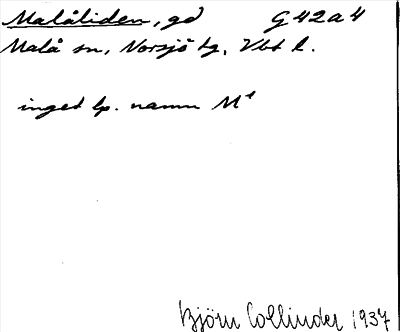 Malåliden, gd G 42 a 4
Malå sn, Norsjö tg, Vbt l.
inget lp. namn M¹
Björn Collinder 1937